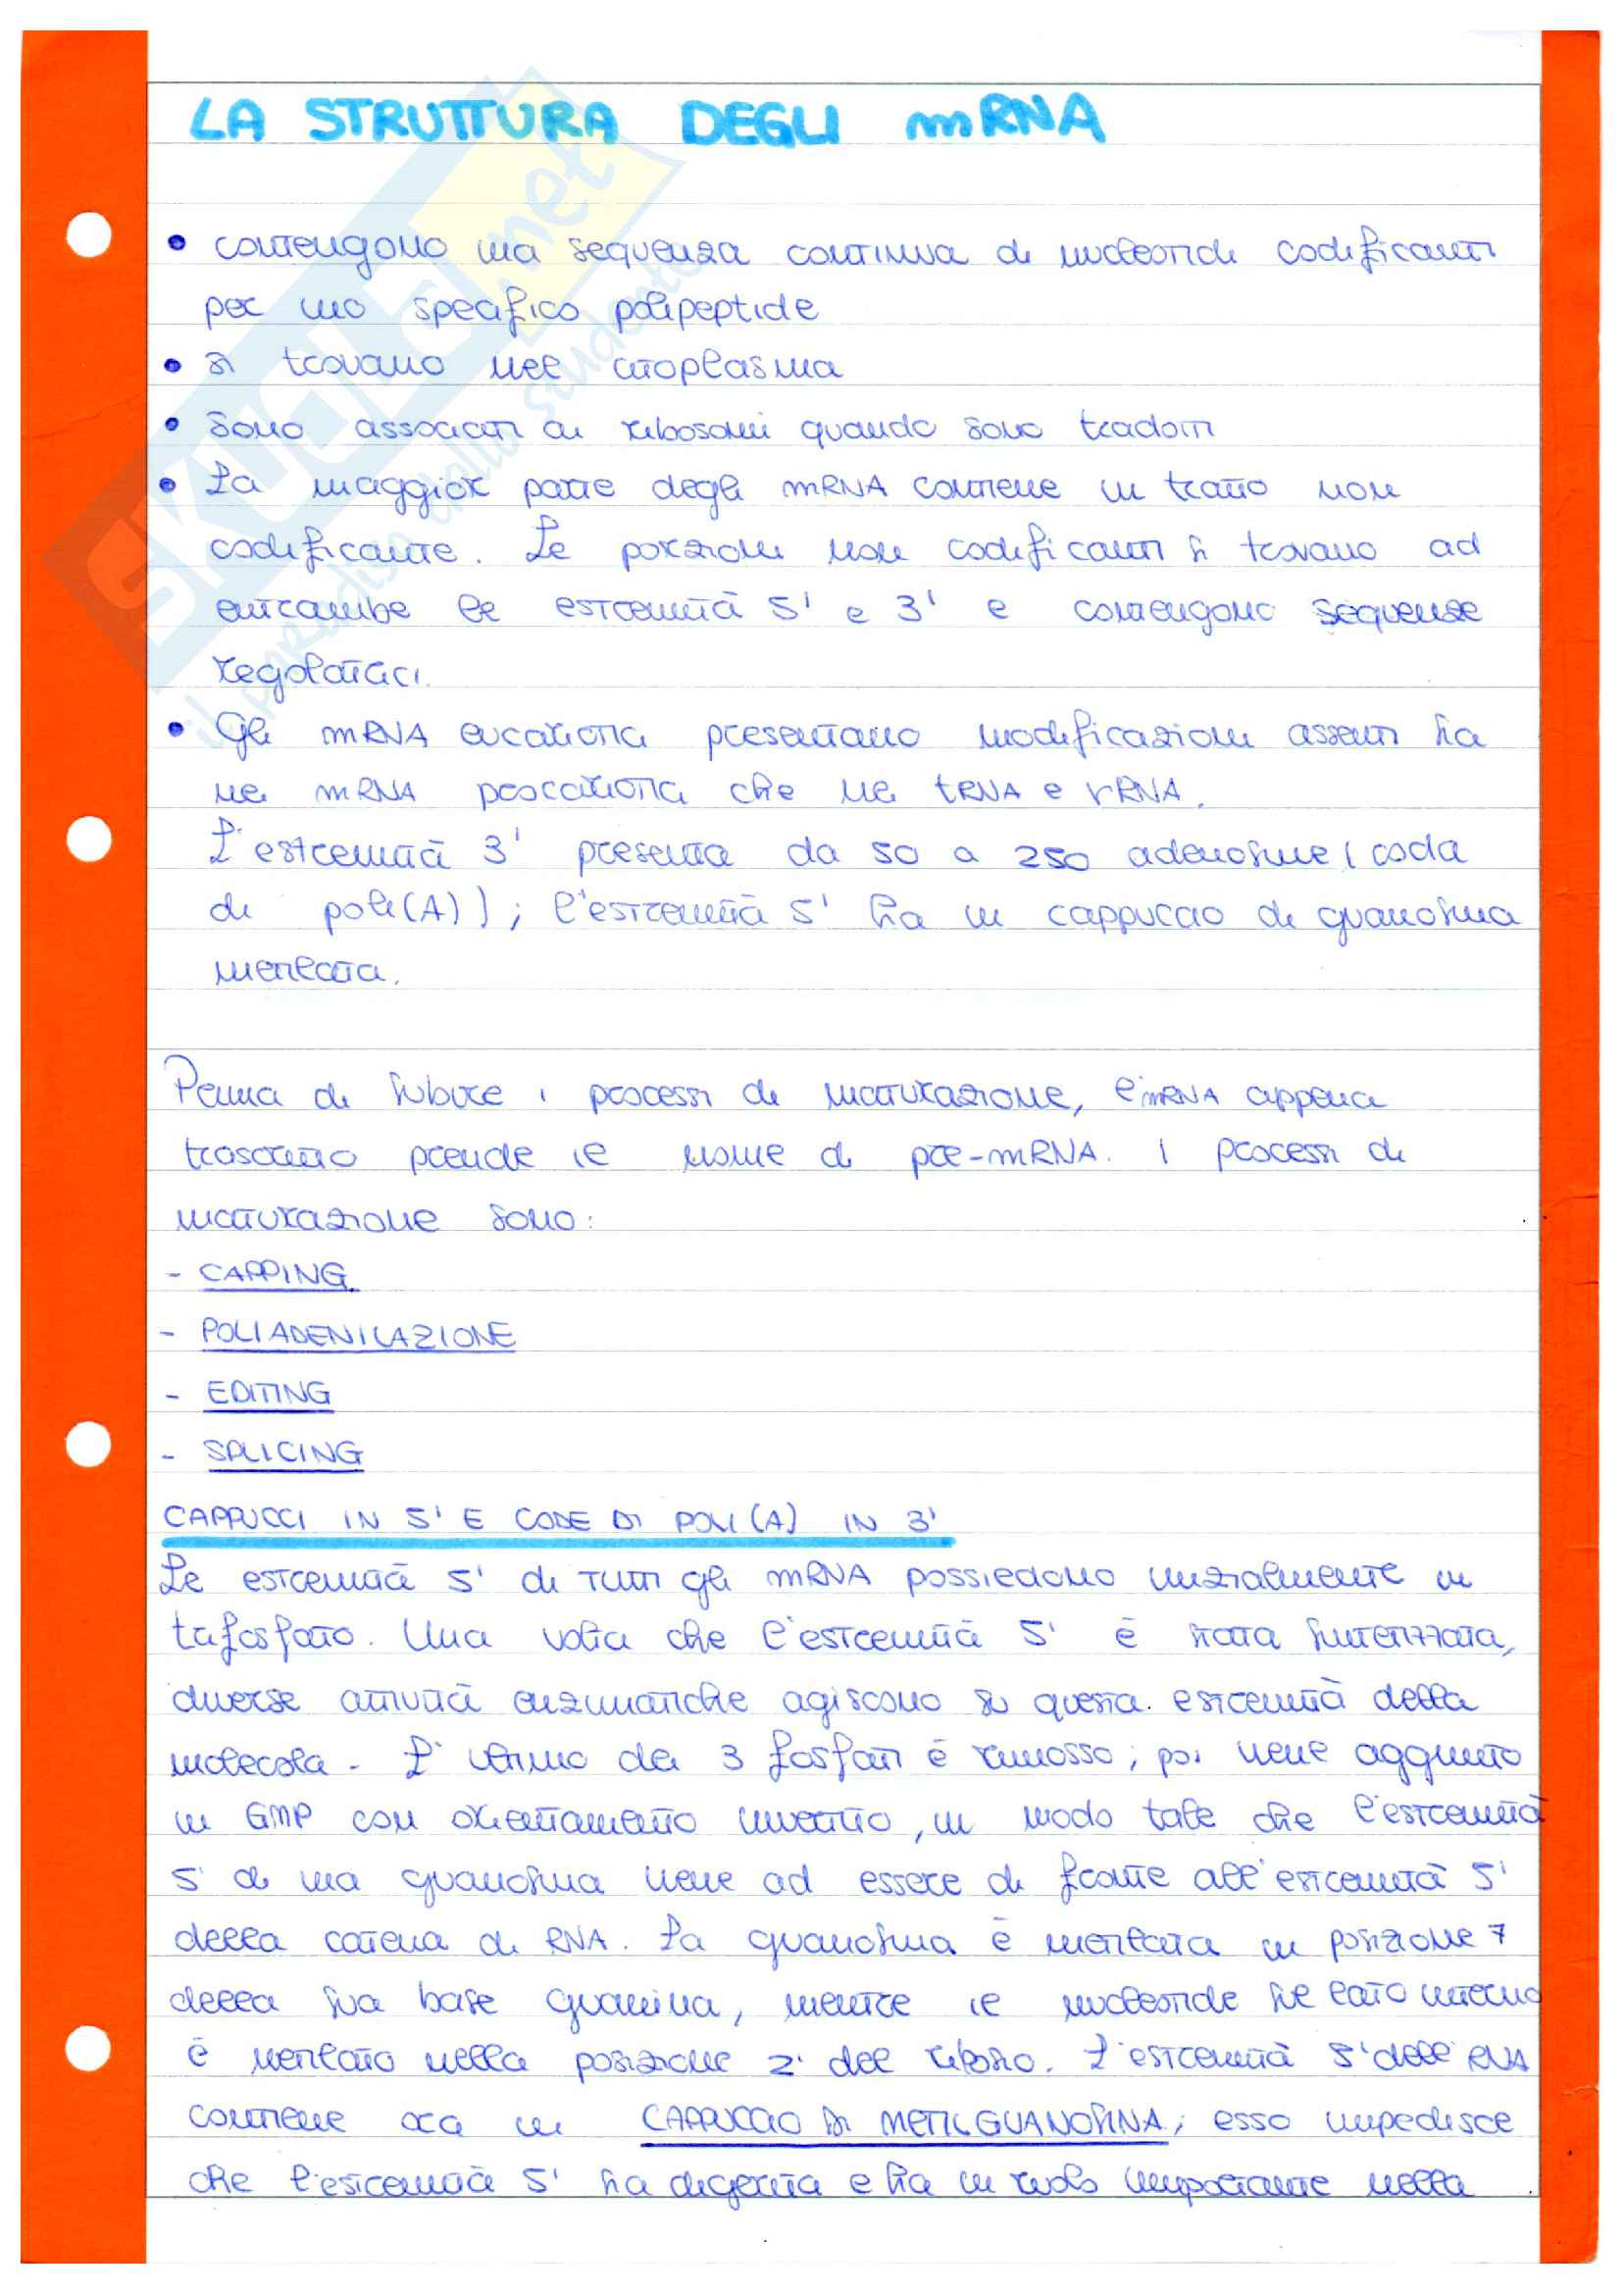 LA STRUTTURA DEGLI mRNA
• contengono una sequenza continua di nucleotidi codificanti
per uno specifico polipeptide
• si trovano nel citoplasma
• sono associati ai ribosomi quando sono tradotti
• La maggior parte degli mRNA contiene un tratto non
codificante. Le porzioni non codificanti si trovano ad
entrambe le estremità 5' e 3' e contengono sequenze
regolatrici.
• Gli mRNA eucarioti presentano modificazioni assenti sia
nei mRNA procarioti che nei tRNA e rRNA.
L'estremità 3' presenta da 50 a 250 adenosine (coda
di poli(A)); l'estremità 5' ha un cappuccio di guanosina
metilata.
Prima di subire i processi di maturazione, l'mRNA appena
trascritto prende il nome di pre-mRNA. I processi di
maturazione sono:
- CAPPING.
- POLIADENILAZIONE
- EDITING
- SPLICING
CAPPUCCI IN 5' E CODE DI POLI(A) IN 3'
Le estremità 5' di tutti gli mRNA possiedono inizialmente un
trifosfato. Una volta che l'estremità 5' è stata sintetizzata,
diverse attività enzimatiche agiscono su questa estremità della
molecola. L'ultimo dei 3 fosfati è rimosso; poi viene aggiunto
un GMP con orientamento invertito, in modo tale che l'estremità
5' di una guanosina viene ad essere di fronte all'estremità 5'
della catena di RNA. La guanosina è metilata in posizione 7
della sua base guanina, mentre il nucleotide sul lato interno
è metilato nella posizione 2' del ribosio. L'estremità 5' dell'RNA
contiene ora un CAPPUCCIO DI METILGUANOSINA; esso impedisce
che l'estremità 5' sia digerita e ha un ruolo importante nella
SKUOLA.net
il paradiso dello studente